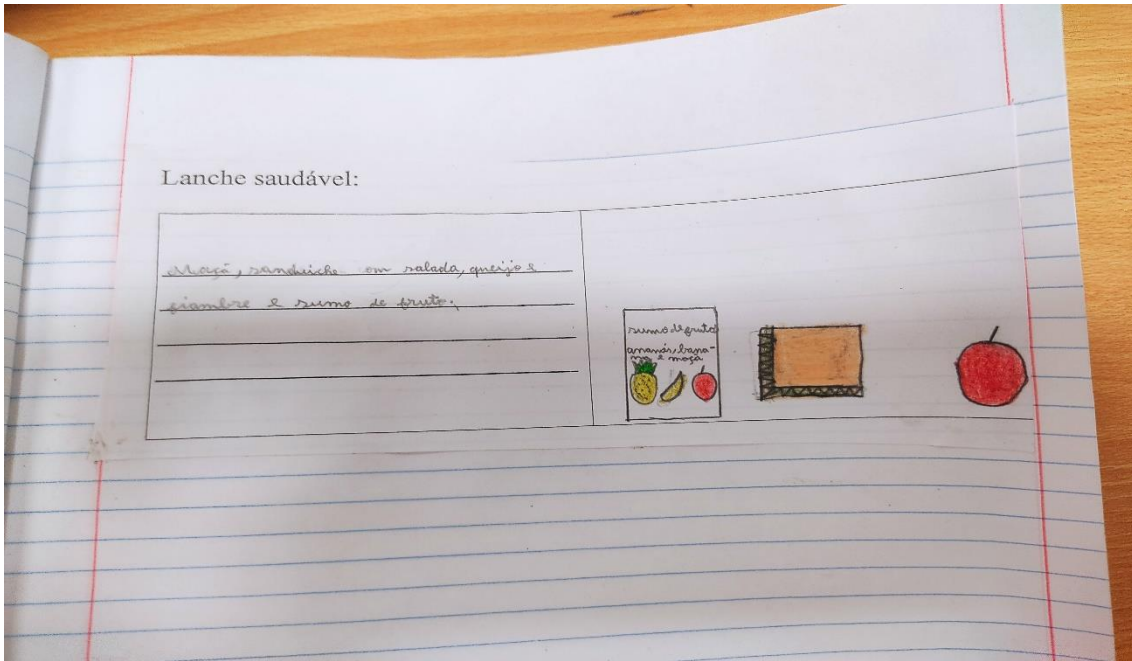 Lanche saudável:
Maçã, sanduiche om salada, queijo e
fiambre e sumo de fruto.
sumo de fruto
ananás, bana-
na e maçã